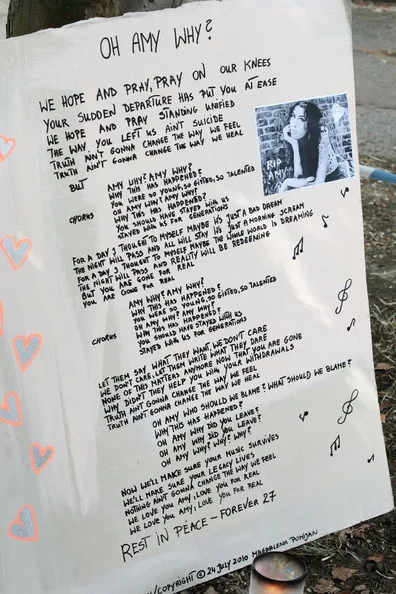 OH AMY WHY?
WE HOPE AND PRAY, PRAY ON OUR KNEES
YOUR SUDDEN DEPARTURE HAS PUT YOU AT EASE
WE HOPE AND PRAY STANDING UNIFIED
THE WAY YOU LEFT US AIN'T SUICIDE
TRUTH AIN'T GONNA CHANGE THE WAY WE FEEL
TRUTH AIN'T GONNA CHANGE THE WAY WE HEAL
BUT AMY WHY? AMY WHY?
WHY THIS HAS HAPPENED?
YOU WERE SO YOUNG, SO GIFTED, SO TALENTED
OH AMY WHY? AMY WHY?
CHORUS WHY THIS HAS HAPPENED?
YOU SHOULD HAVE STAYED WITH US
STAYED WITH US FOR GENERATIONS
RIP
AMY
FOR A DAY I THOUGHT TO MYSELF MAYBE IT'S JUST A BAD DREAM
THE NIGHT WILL PASS AND ALL WILL STAY IT'S JUST A MORNING SCREAM
FOR A DAY I THOUGHT TO MYSELF MAYBE THE WHOLE WORLD IS DREAMING
THE NIGHT WILL PASS AND REALITY WILL BE REDEEMING
BUT YOU ARE GONE FOR REAL
YOU ARE GONE FOR REAL
AMY WHY? AMY WHY?
WHY THIS HAS HAPPENED?
YOU WERE SO YOUNG, SO GIFTED, SO TALENTED
OH AMY WHY? AMY WHY?
CHORUS WHY THIS HAS HAPPENED?
YOU SHOULD HAVE STAYED WITH US
STAYED WITH US FOR GENERATIONS
LET THEM SAY WHAT THEY WANT WE DON'T CARE
WE DON'T CARE, LET THEM WRITE WHAT THEY DARE
NONE OF THIS MATTERS ANYMORE NOW THAT YOU ARE GONE
WHY DIDN'T THEY HELP YOU WITH YOUR WITHDRAWALS
TRUTH AIN'T GONNA CHANGE THE WAY WE FEEL
TRUTH AIN'T GONNA CHANGE THE WAY WE HEAL
OH AMY WHO SHOULD WE BLAME? WHAT SHOULD WE BLAME?
WHY THIS HAS HAPPENED?
OH AMY WHY DID YOU LEAVE?
OH AMY WHY DID YOU LEAVE?
OH AMY WHY? WHY? WHY?
NOW WE'LL MAKE SURE YOUR MUSIC SURVIVES
WE'LL MAKE SURE YOUR LEGACY LIVES
NOTHING AIN'T GONNA CHANGE THE WAY WE FEEL
WE LOVE YOU AMY, LOVE YOU FOR REAL
WE LOVE YOU AMY, LOVE YOU FOR REAL
REST IN PEACE - FOREVER 27
/COPYRIGHT © 24 JULY 2010 MAGDALENA